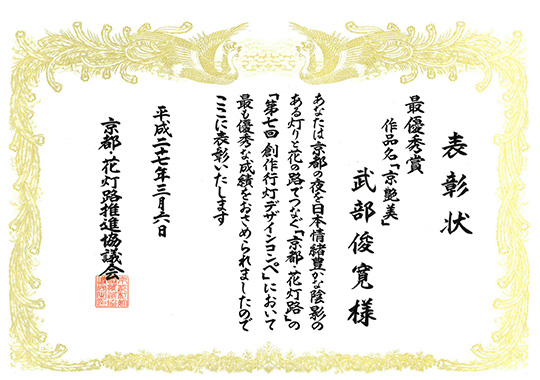 表彰状
最優秀賞
作品名「京艶美」
武部俊寛様
あなたは京都の夜を日本情緒豊かな陰影の
ある灯りと花の路でつなぐ「京都・花灯路」の
「第七回 創作行灯デザインコンペ」において
最も優秀な成績をおさめられましたので
ここに表彰いたします
平成二十七年三月六日
京都・花灯路推進協議会